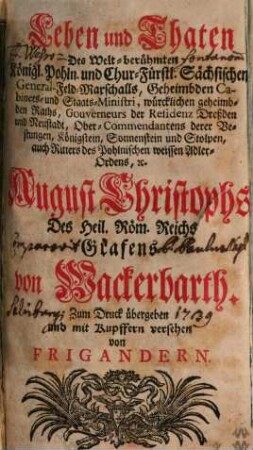 Leben und Thaten
Des Welt-berühmten
Königl. Pohln. und Chur-Fürstl. Sächsischen
General-Feld-Marschalls, Geheimbden Ca-
binets- und Staats-Ministri, würcklichen geheimb-
den Raths, Gouverneurs der Residenz Dreßden
und Neustadt, Ober-Commendantens derer Ve-
stungen, Königstein, Sonnenstein und Stolpen,
auch Ritters des Pohlnischen weissen Adler-
Ordens, ꝛc.
August Christophs
Des Heil. Röm. Reichs
Grafens
von Wackerbarth.
Zum Druck übergeben 1739
und mit Kupffern versehen
von
FRIGANDERN.